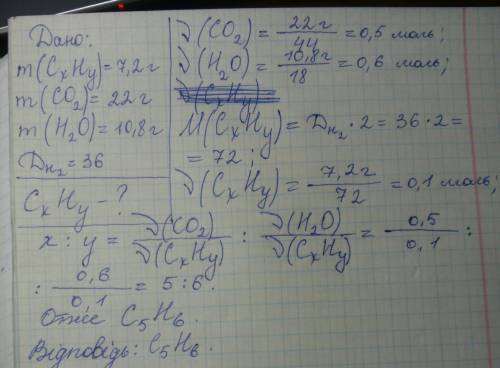 Дано:
m(CxHy)=7,2г
m(CO2)=22г
m(H2O)=10,8г
DH2=36
CxHy-?
ν(CO2)=22г/44=0,5 моль;
ν(H2O)=10,8г/18=0,6 моль;
ν(CxHy)
M(CxHy)=DH2·2=36·2=
=72;
ν(CxHy)=7,2г/72=0,1 моль;
x:y=ν(CO2)/ν(CxHy):ν(H2O)/ν(CxHy)=0,5/0,1:
:0,6/0,1=5:6.
Отже C5H6.
Відповідь: C5H6.